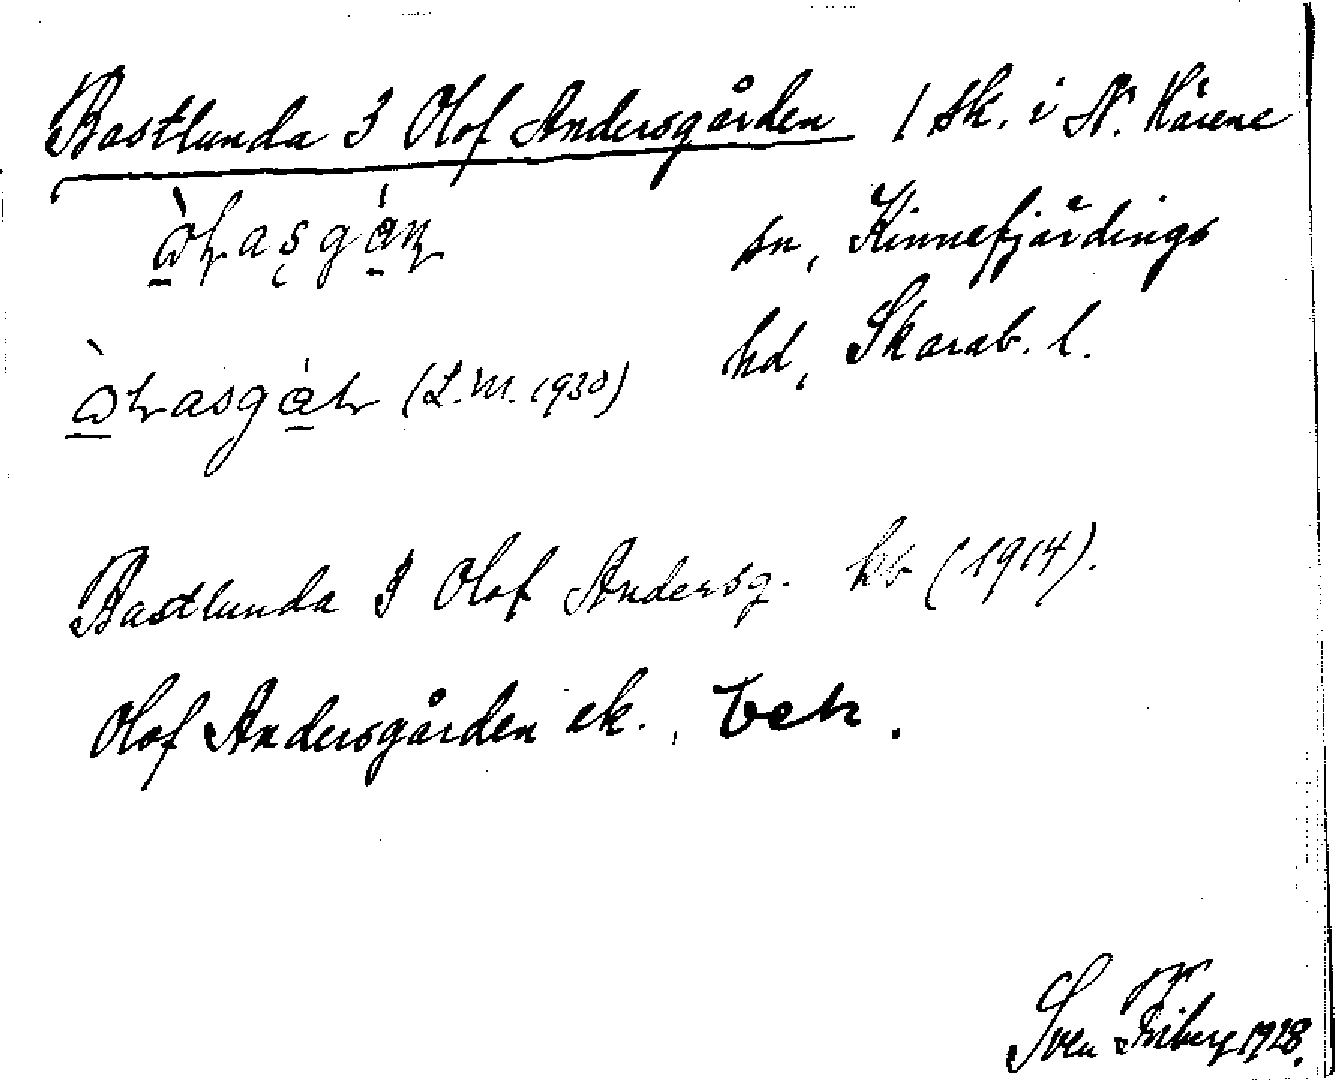 Bastlunda 3 Olof Andersgården 1 sk. i N. Kårene
sn, Kinnefjärdings
hd, Skarab. l.
(L.M. 1930)
Bastlunda 3 Olof Andersg. kb (1914).
Olof Andersgården ek.
Sven Friberg 1928.